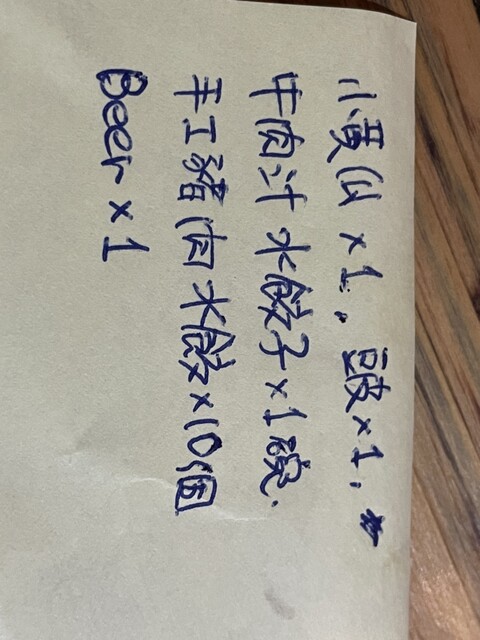 小黃瓜 x 1. 豆皮 x 1.
牛肉汁水餃子 x 1碗.
手工豬肉水餃 x 10個
Beer x 1